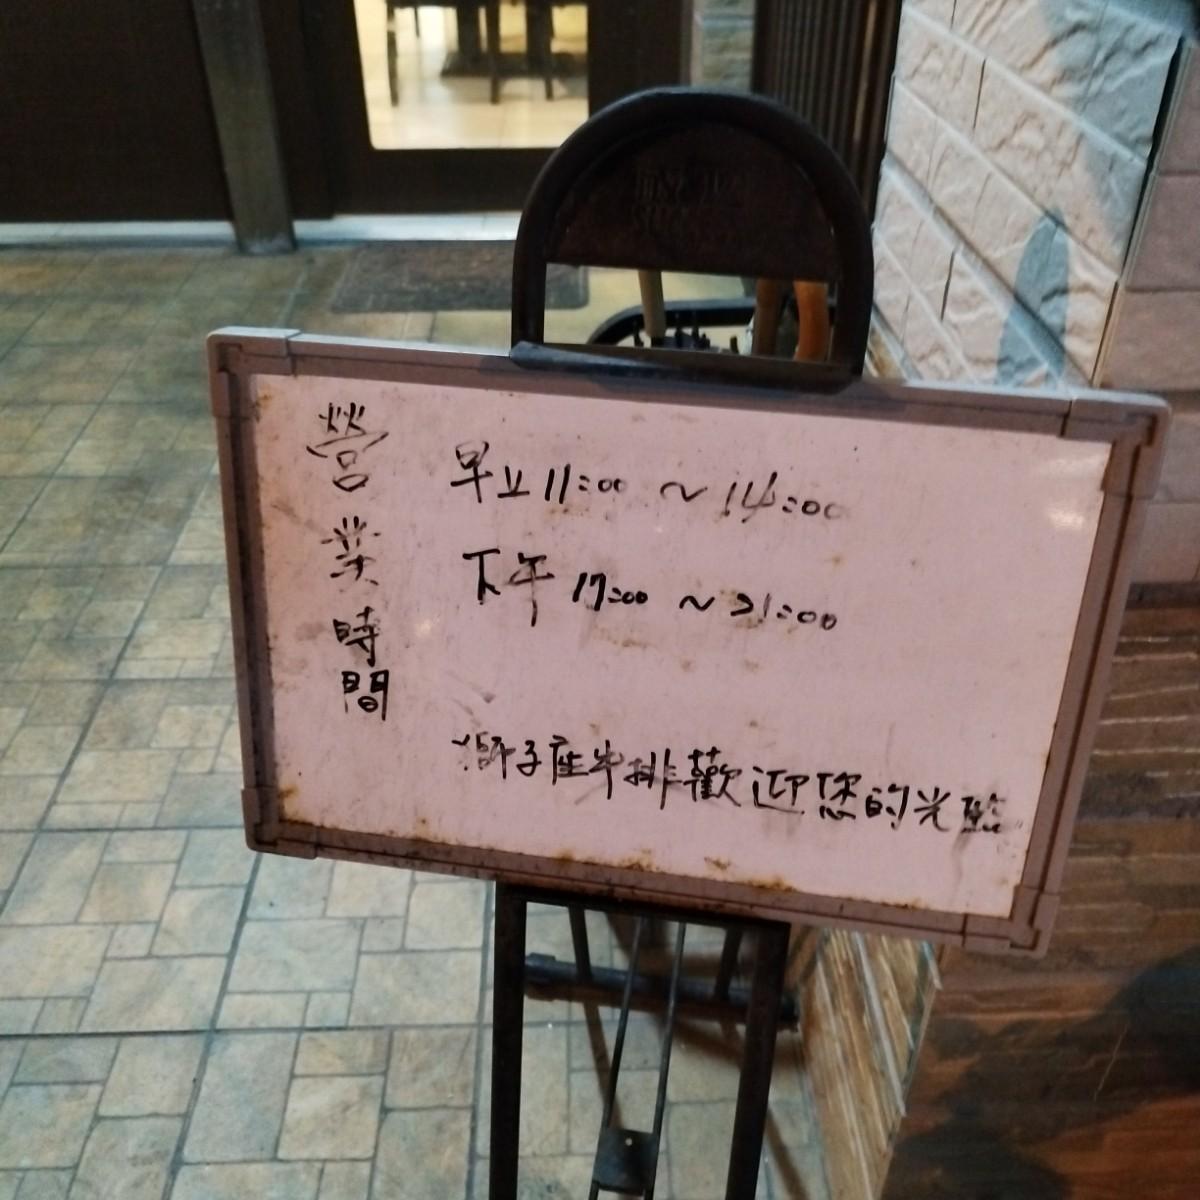 營業時間
早上11:00 ~ 14:00
下午 17:00 ~ 21:00
獅子座牛排歡迎您的光臨